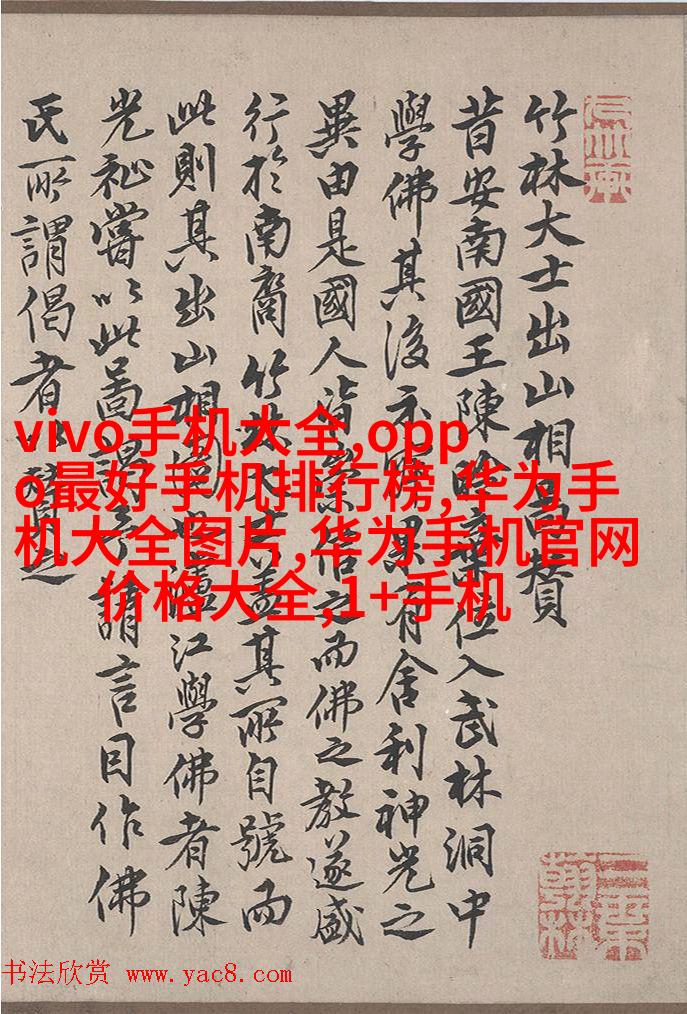 竹林大士出山相啚贊
昔安南國王陳位入武林洞中
學佛其後示果有舍利神光之
異由是國人皆崇信之而佛之教遂盛
行於南裔竹林大士蓋其所自號而
此則其出山相也瀘江學佛者陳
光祉嘗以此啚謁予請言目作佛
氏所謂偈者以贊之
vivo手机大全,opp
o最好手机排行榜,华为手
机大全图片,华为手机官网
价格大全,1+手机
书法欣赏 www.yac8.com